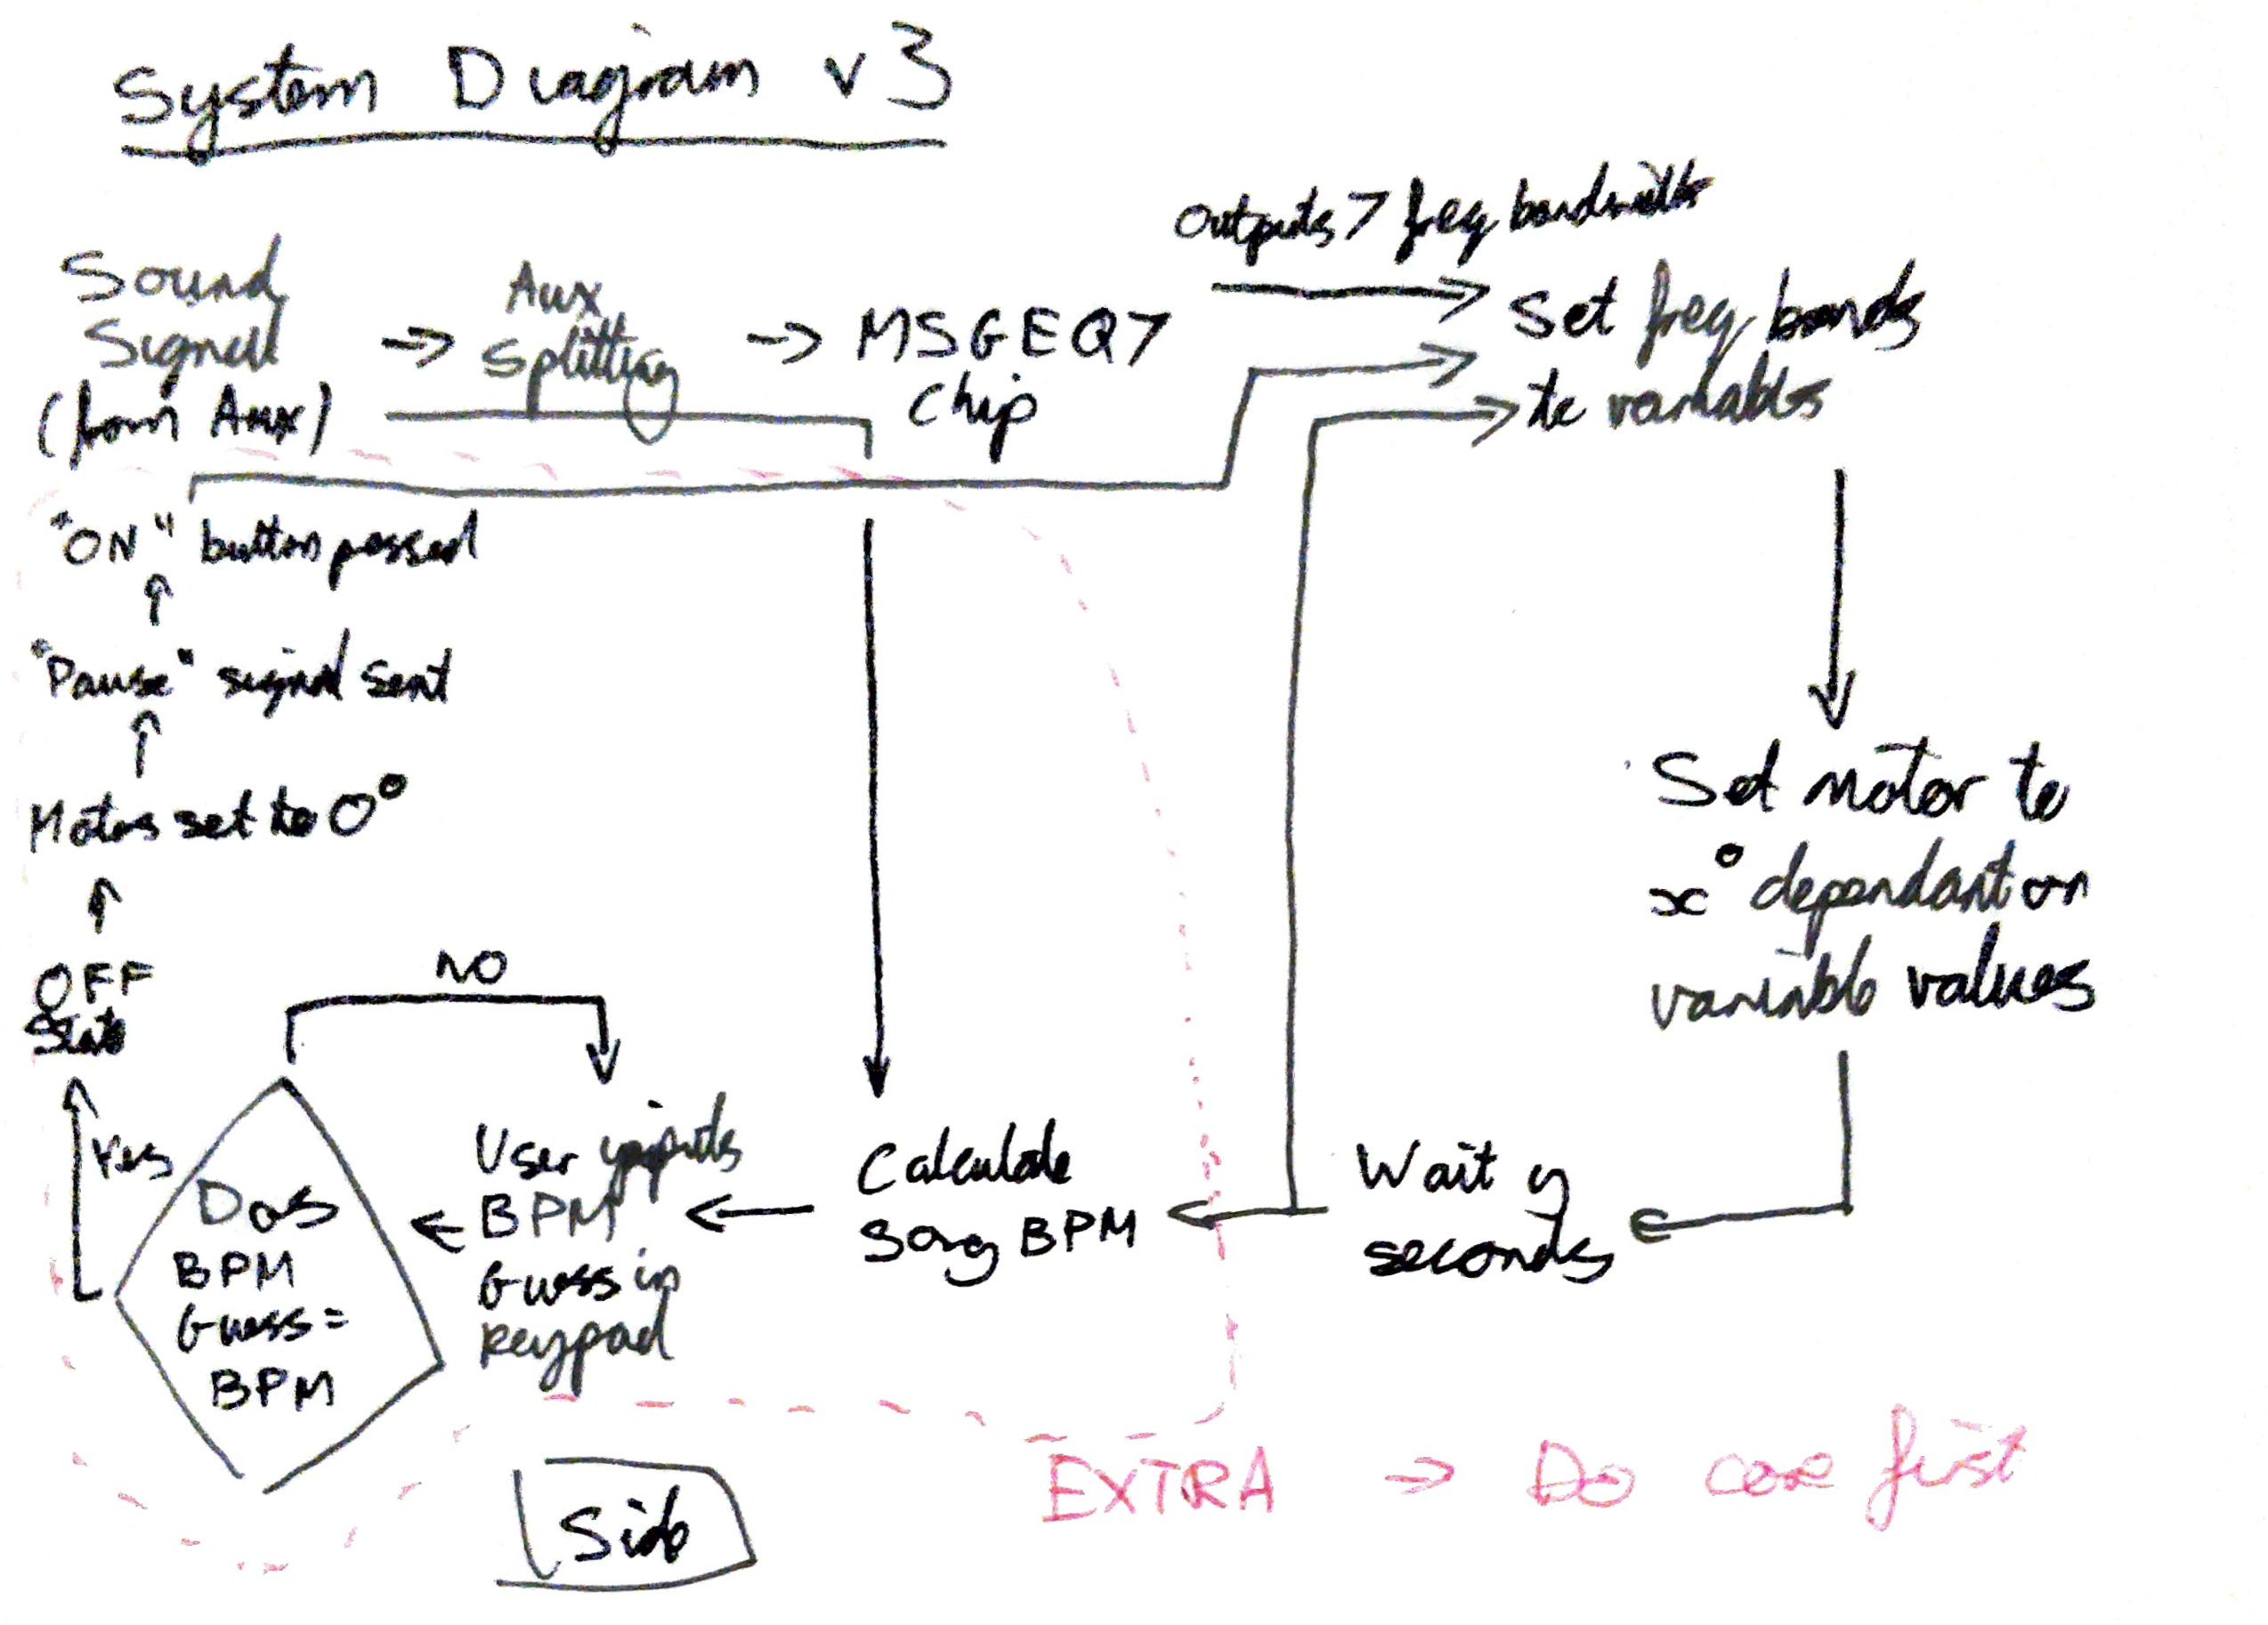 System Diagram v3
Outputs 7 freq bandwidths
Sound
Signal
(from Aux)
→ Aux
Splitting
→ MSGEQ7
chip
Set freq bands
to variables
"ON" button pressed
"Pause" signal sent
Motors set to 0°
OFF
State
NO
Yes
Does
BPM
Guess =
BPM
User inputs
BPM
Guess in
keypad
Calculate
Song BPM
Wait y
seconds
Set motor to
x° dependant on
variable values
EXTRA → Do core first
Side